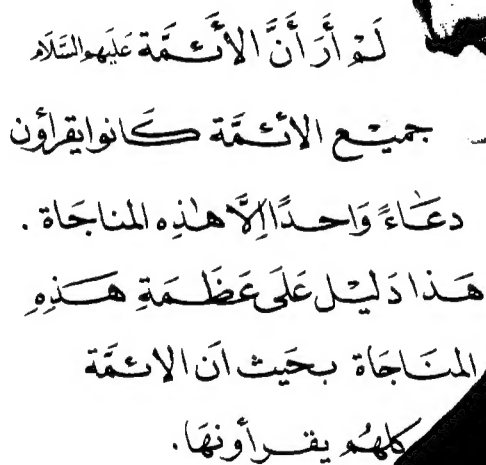 لَمْ أَرَ أَنَّ الأَئـمَّة عَلَيهم السَّلَام
جميـع الائـمَّة كَـانوا يقرأون
دعَـاءً وَاحـدًا الِاَّ هـٰذِه المناجَاة .
هَـذا دَليْـل عَلَى عَظَـمَةِ هَـذِهِ
المنَـاجَاة بـحَيث ان الائـمَّة
كلهُم يقـرأونهَا.